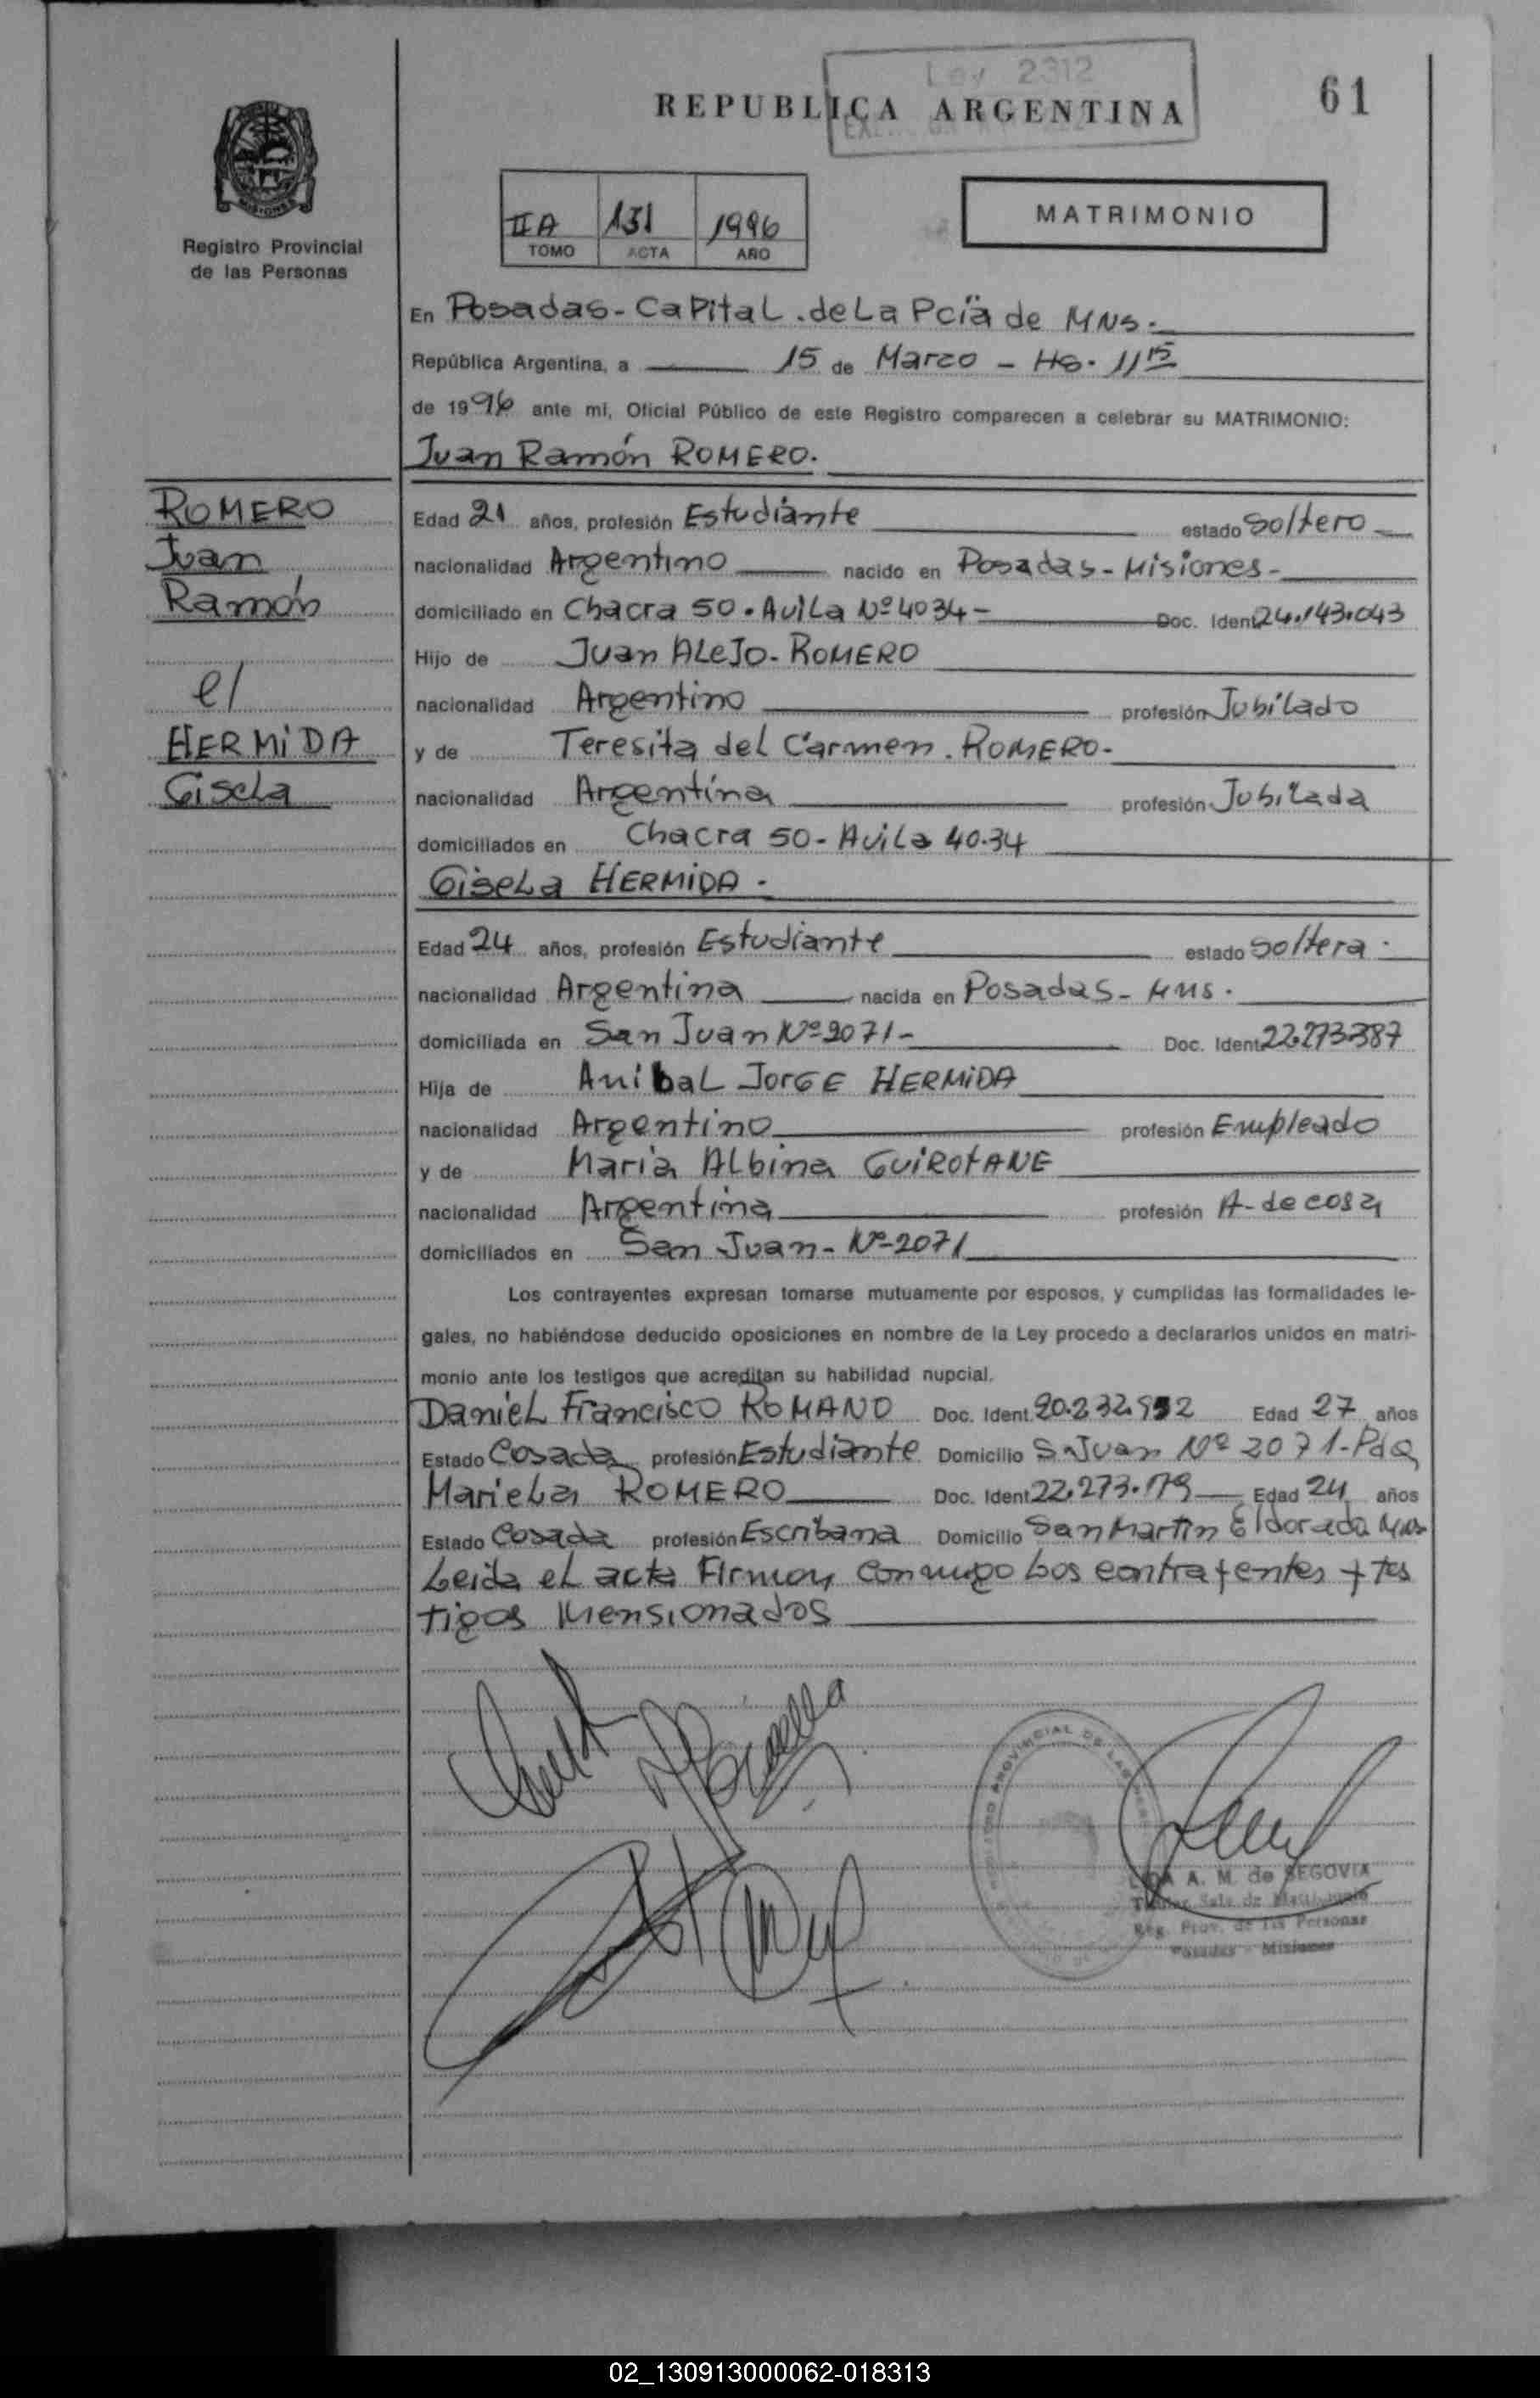 Ley 2312
REPUBLICA ARGENTINA
61
MISIONES
Registro Provincial
de las Personas
IIA 131 1996
TOMO ACTA AÑO
MATRIMONIO
En Posadas - Capital . de La Pcia de MNS.
República Argentina, a 15 de Marzo - Hs. 11 15
de 1996 ante mí, Oficial Público de este Registro comparecen a celebrar su MATRIMONIO:
Juan Ramón ROMERO.
ROMERO
Juan
Ramón
el
HERMIDA
Gisela
Edad 21 años, profesión Estudiante estado Soltero
nacionalidad Argentino nacido en Posadas - Misiones -
domiciliado en Chacra 50 . Avila Nº 4034 - Doc. Ident 24.143.043
Hijo de Juan ALeJo - ROMERO
nacionalidad Argentino profesión Jubilado
y de Teresita del Carmen . ROMERO -
nacionalidad Argentina profesión Jubilada
domiciliados en Chacra 50 - Avila 40.34
Gisela HERMIDA -
Edad 24 años, profesión Estudiante estado Soltera
nacionalidad Argentina nacida en Posadas - MNS .
domiciliada en San Juan Nº 2071 - Doc. Ident 22.273.387
Hija de Anibal Jorge HERMIDA
nacionalidad Argentino profesión Empleado
y de Maria Albina
nacionalidad Argentina profesión A - de casa
domiciliados en San Juan - Nº 2071
Los contrayentes expresan tomarse mutuamente por esposos, y cumplidas las formalidades le-
gales, no habiéndose deducido oposiciones en nombre de la Ley procedo a declararlos unidos en matri-
monio ante los testigos que acreditan su habilidad nupcial.
Daniel Francisco ROMANO Doc. Ident. 20.232. Edad 27 años
Estado Casada profesión Estudiante Domicilio S. Juan Nº 2071 - Pdas
Mariela ROMERO Doc. Ident 22.273.179 Edad 24 años
Estado Casada profesión Escribana Domicilio San Martin Eldorado Mns
Leida el acta Firman conmigo Los contrayentes y tes
tigos Mensionados
A. M. de SEGOVIA
Titular Sala de Matrimonio
Reg. Prov. de las Personas
Posadas - Misiones
02_130913000062-018313